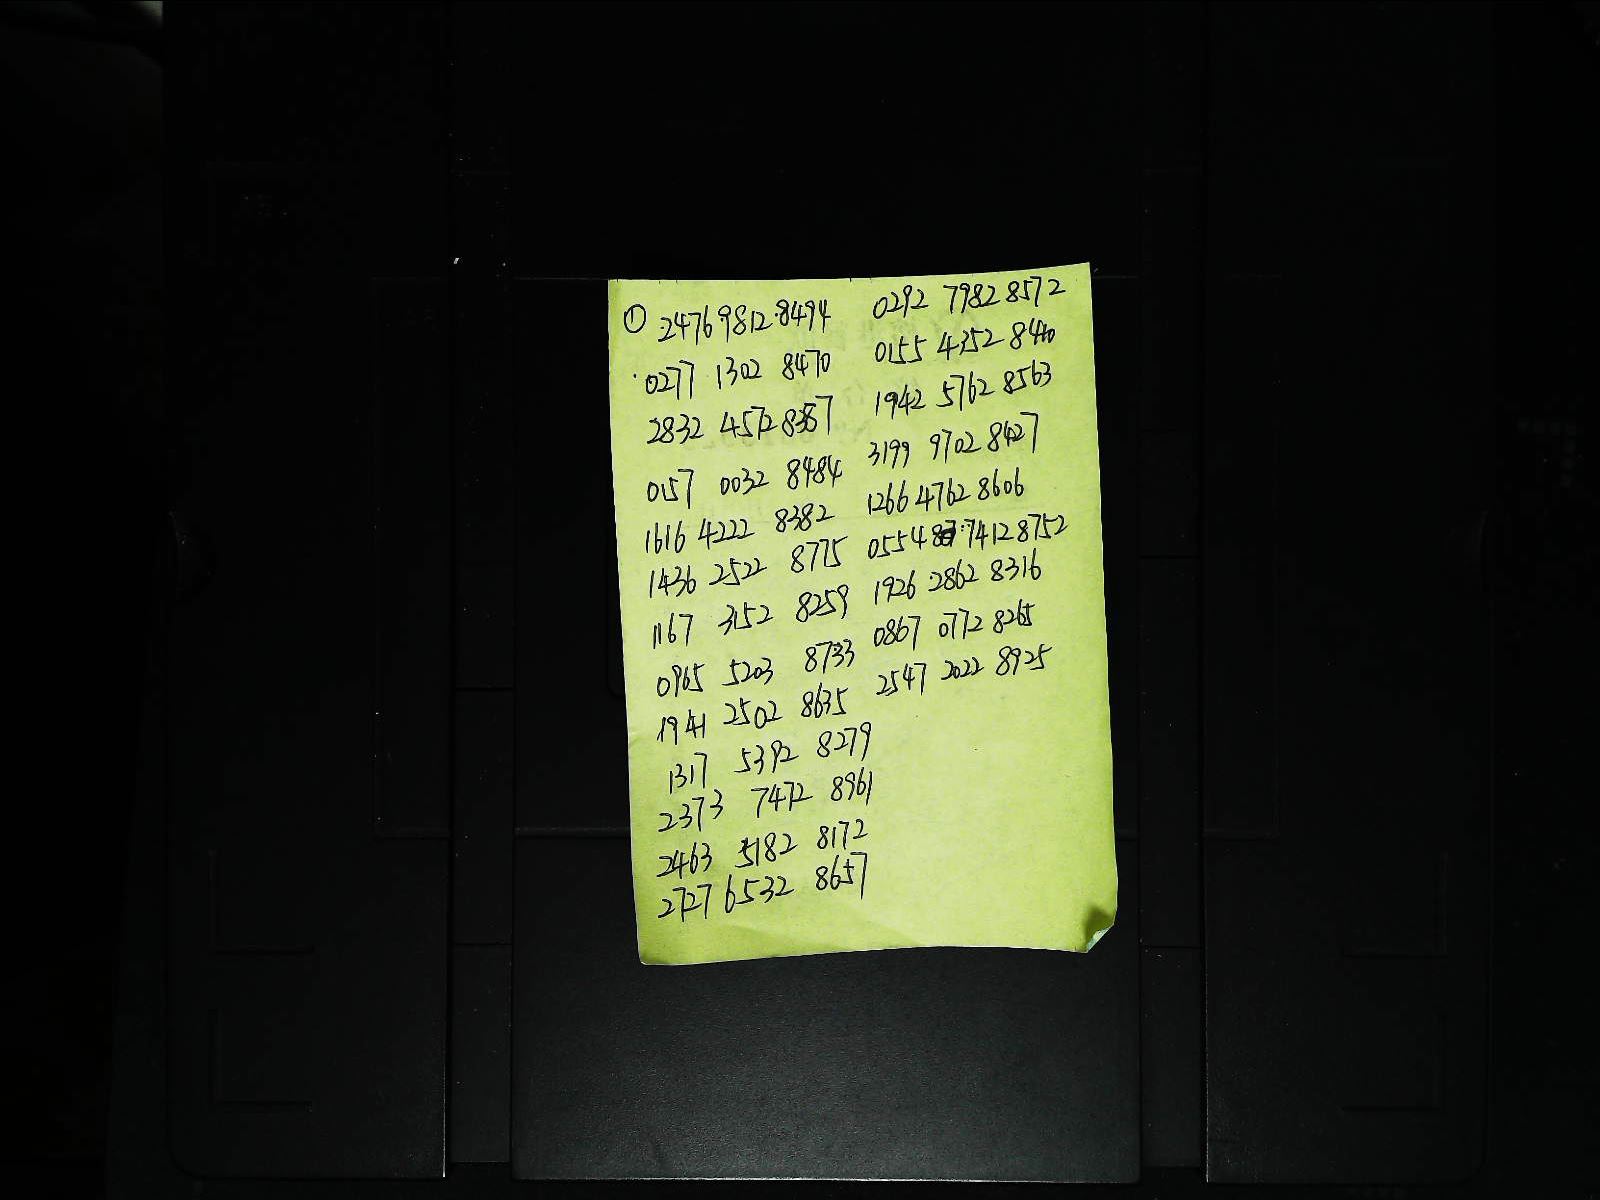 ① 2476 9812 8494
0277 1302 8470
2832 4572 8387
0157 0032 8484
1616 4222 8382
1436 2522 8775
1167 3152 8259
0965 5203 8733
1941 2502 8635
1317 5392 8279
2373 7472 8961
2463 5182 8172
2727 6532 8657
0292 7982 8572
0155 4352 8440
1942 5762 8563
3199 9702 8427
1266 4762 8606
0554 7412 8752
1926 2862 8316
0867 0772 8265
2547 2022 8925